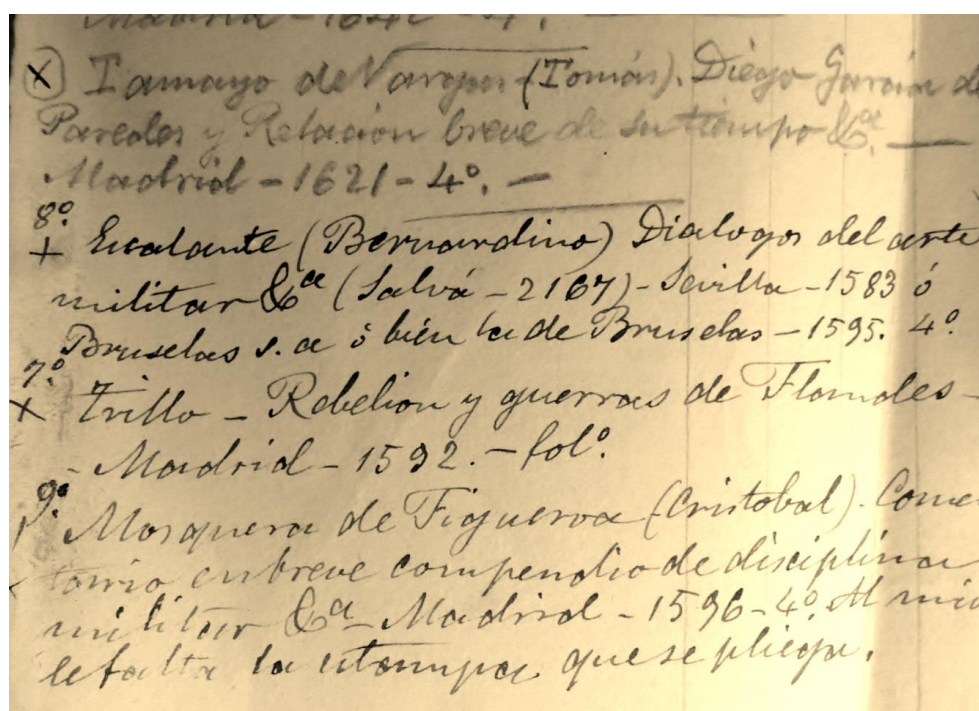 Madrid - 1642 - 4º.
(X) Tamayo de Vargas (Tomás). Diego Garcia de
Paredes y Relacion breve de su tiempo &ª. —
Madrid - 1621 - 4º. —
8º
+ Escalante (Bernardino) Dialogos del arte
militar &ª (Salvá - 2167) - Sevilla - 1583 ó
Bruselas s. a ó bien la de Bruselas - 1595. 4º.
7º
X Trillo - Rebelion y guerras de Flandes -
- Madrid - 1592. - folº.
9º
Mosquera de Figueroa (Cristobal). Come
tario en breve compendio de disciplina
militar &ª - Madrid - 1596 - 4º Al mio
le falta la estampa que se pliega.